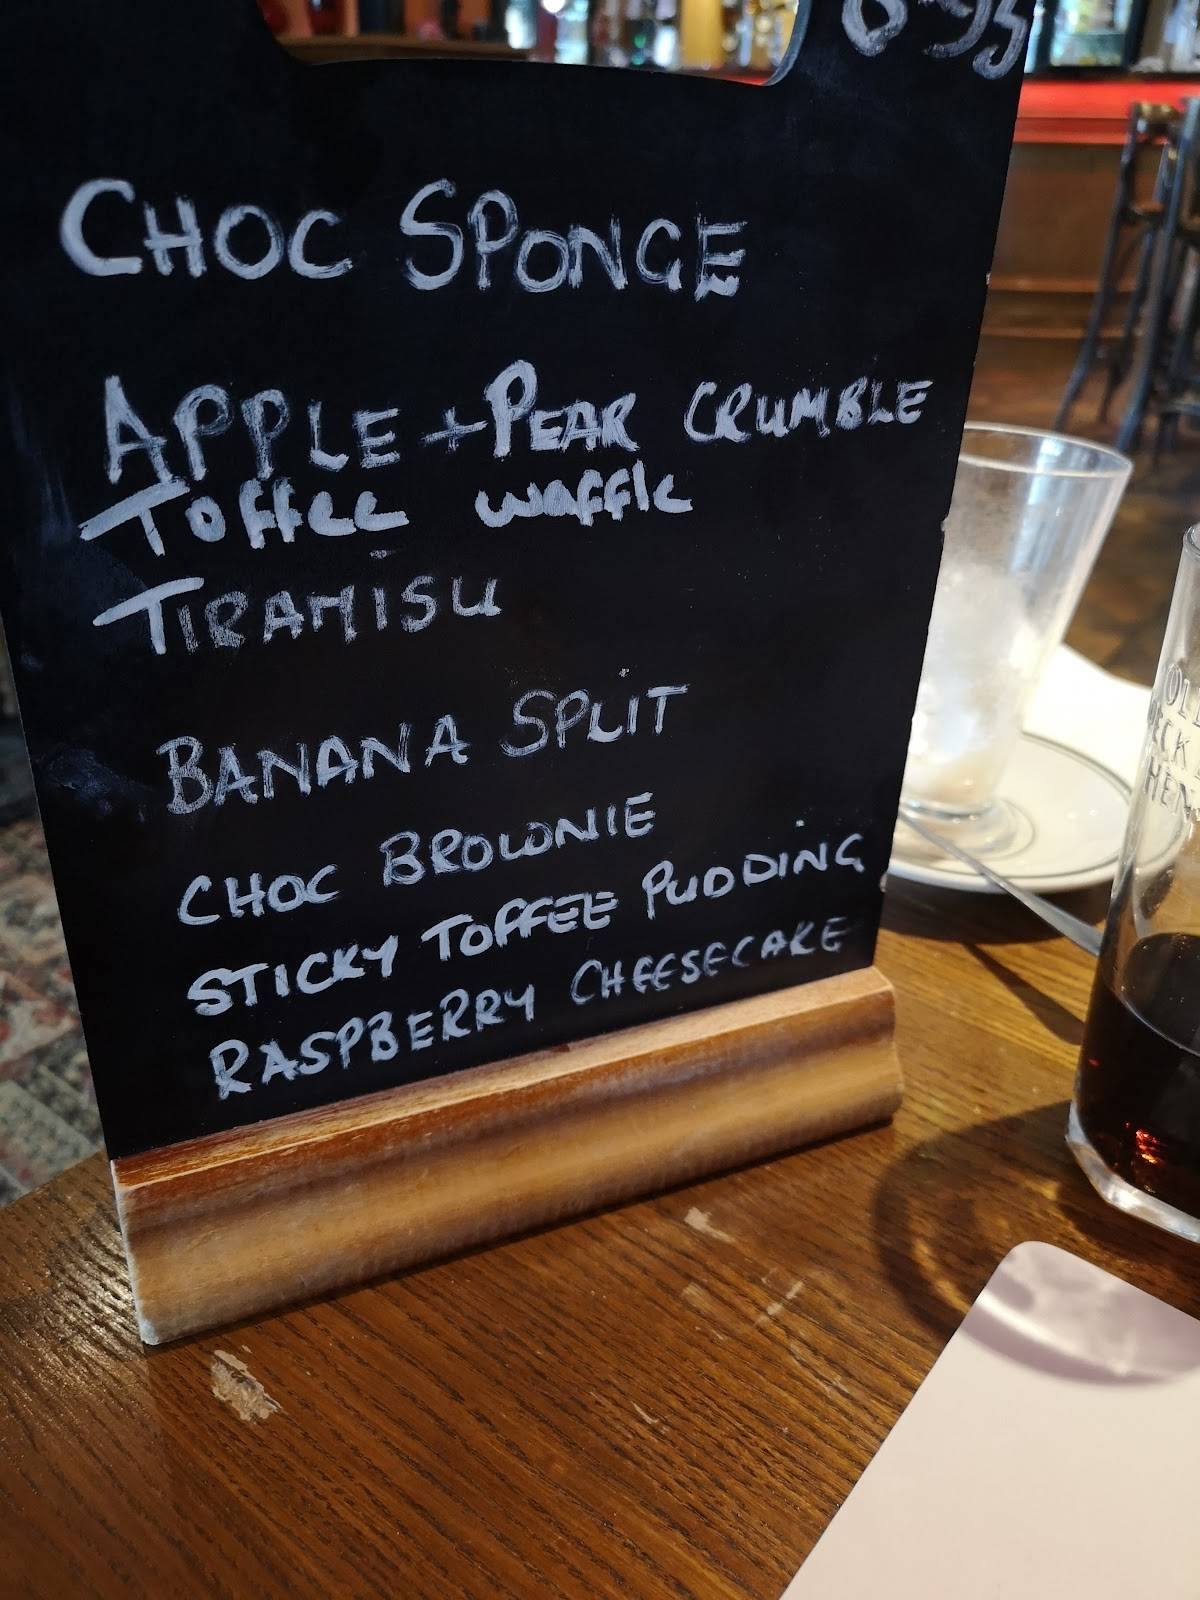 6-95
CHOC SPONGE
APPLE + PEAR CRUMBLE
Toffee waffle
TIRAMISU
BANANA SPLIT
CHOC BROWNIE
STICKY TOFFEE PUDDING
RASPBERRY CHEESECAKE